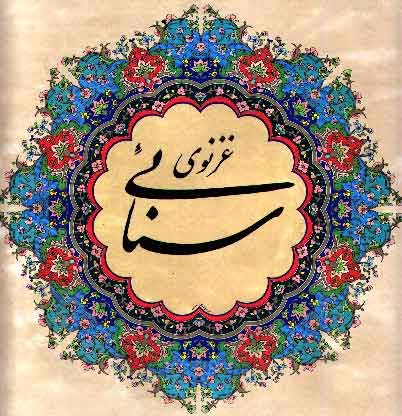 سنائی
غزنوی